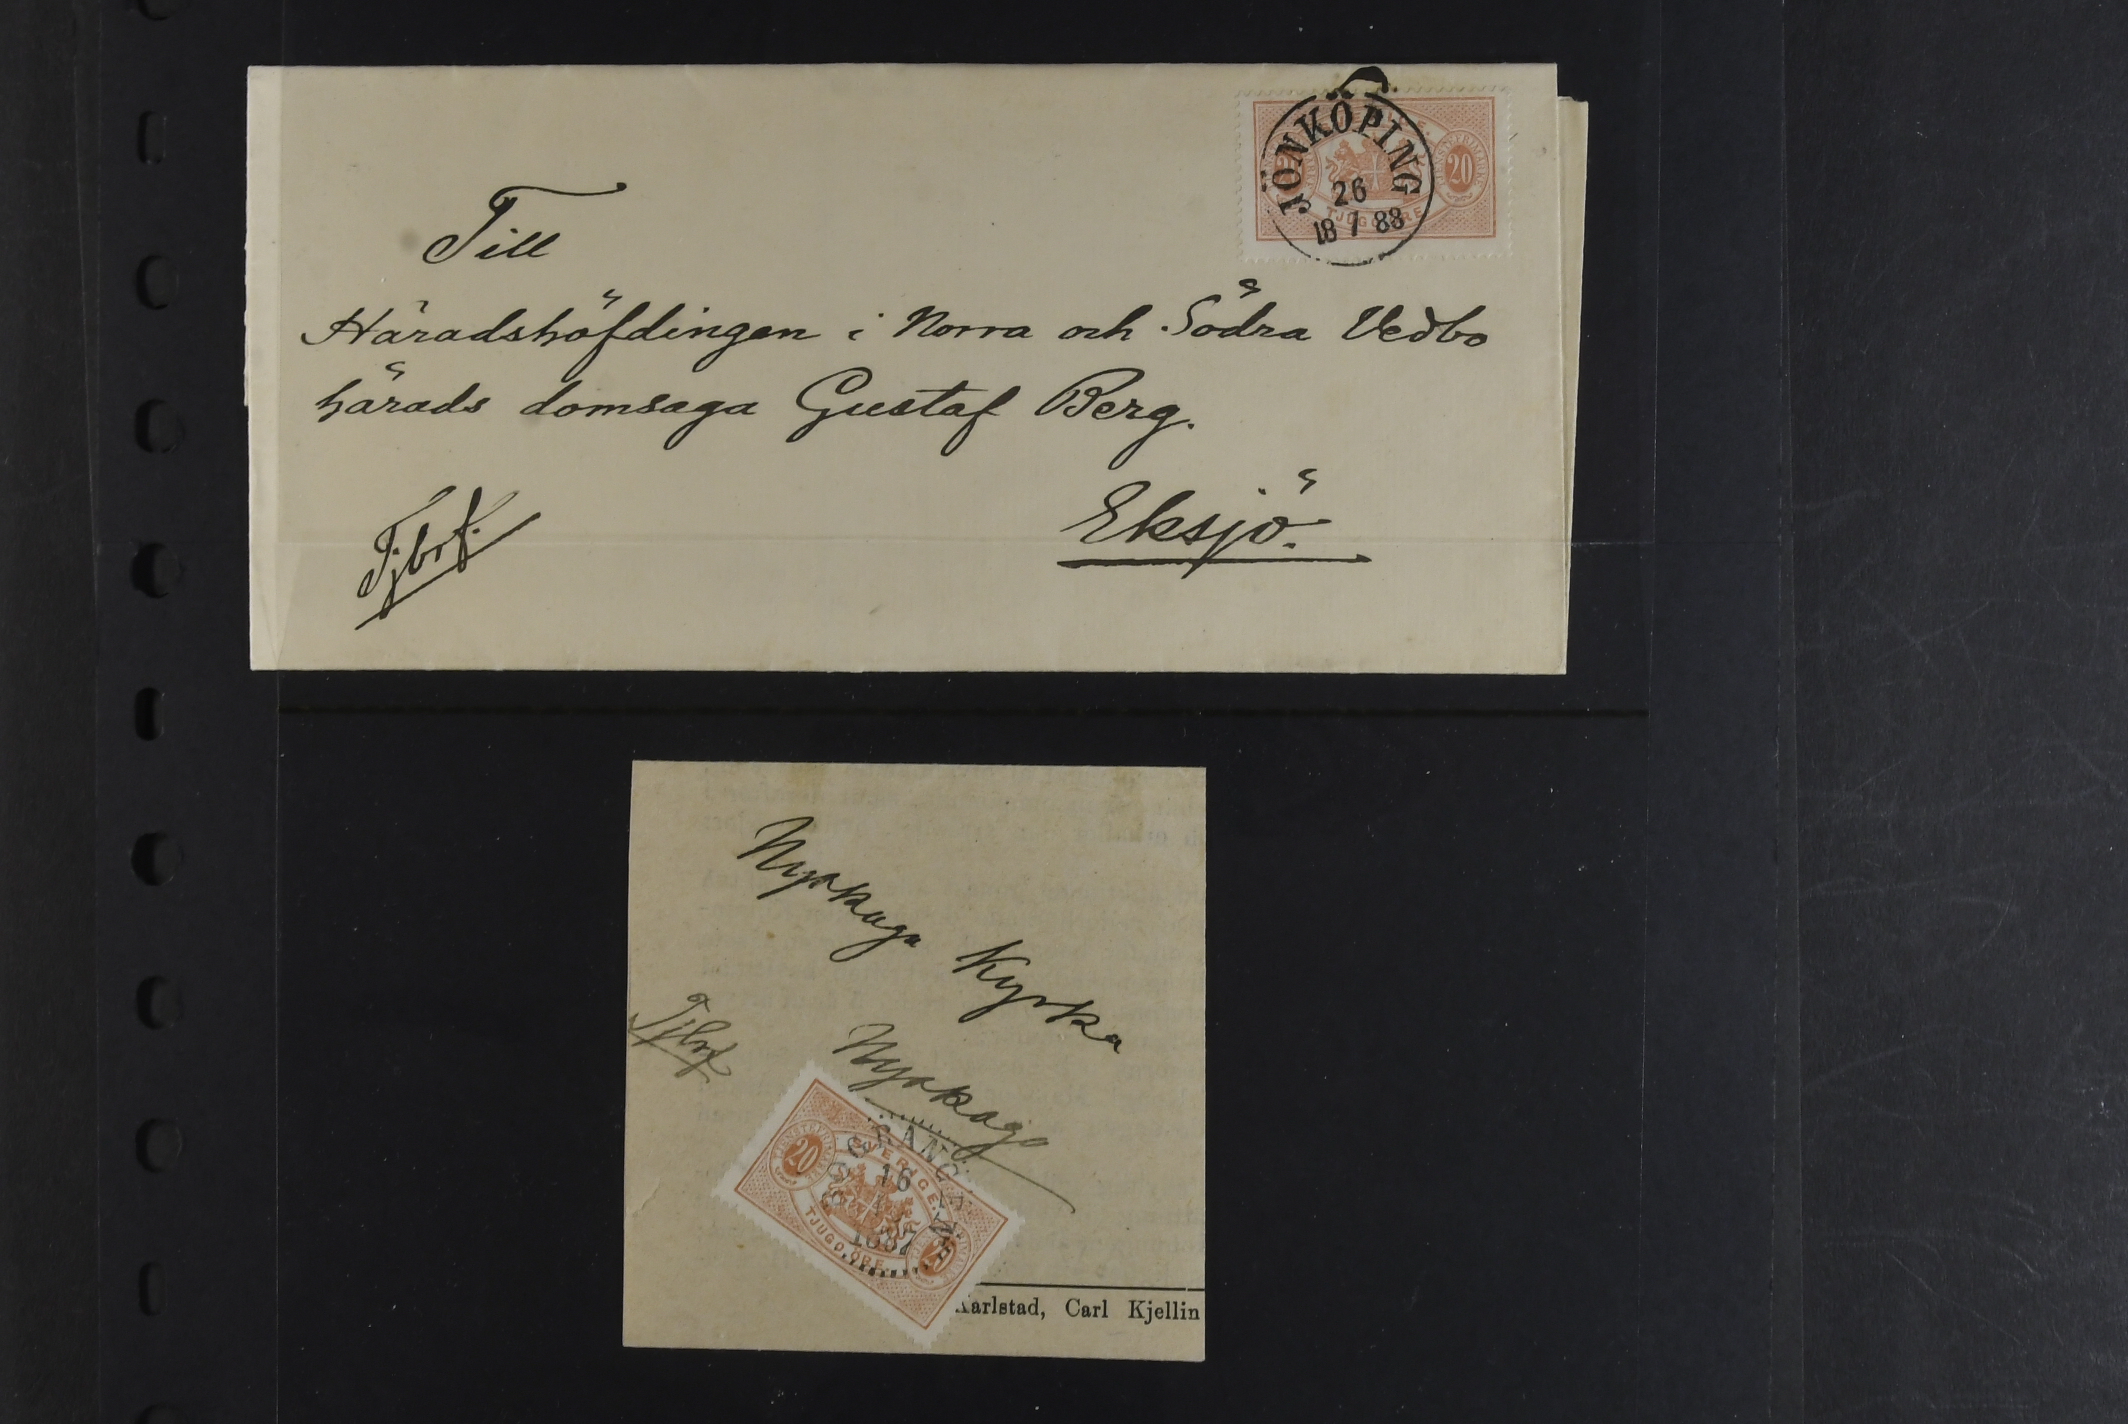 JÖNKÖPING
26
18 7 88
20
TJUGO ÖRE
Till
Häradshöfdingen i Norra och Södra Vedbo
härads domsaga Gustaf Berg.
Tjbrf.
Eksjö.
Nyskoga Kyrka
Tjbrf
Nyskoga
SVERIGE
20
TJUGO ÖRE
16
1887
Karlstad, Carl Kjellin